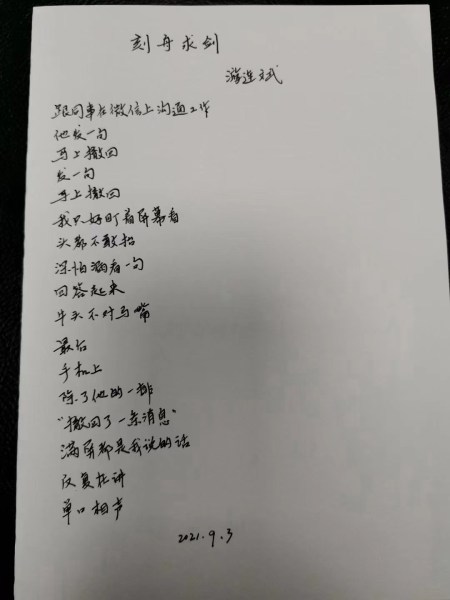 刻舟求剑
游连斌
跟同事在微信上沟通工作
他发一句
马上撤回
发一句
马上撤回
我只好盯着屏幕看
头都不敢抬
深怕漏看一句
回答起来
牛头不对马嘴
最后
手机上
除了他的一排
“撤回了一条消息”
满屏都是我说的话
反复在讲
单口相声
2021.9.3